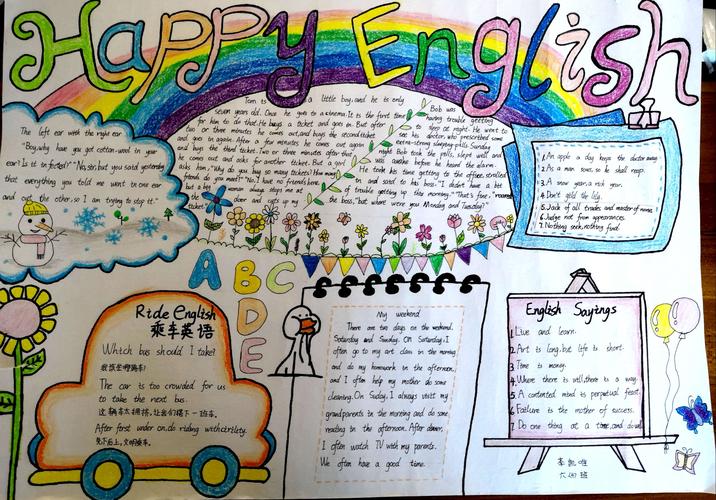 Happy English
The left ear with the right ear
"Boy, why have you got cotton-wool in your
ear? Is it infected?" "No, sir, but you said yesterday
that everything you told me went in one ear
and out the other, so I am trying to stop it."
Tom is a little boy, and he is only
seven years old. Once he goes to a cinema. It is the first time
for him to do that. He buys a ticket and goes in. But after
two or three minutes he comes out, and buys the second ticket
and goes in again. After a few minutes he comes out again
and buys the third ticket. Two or three minutes after that
he comes out and asks for another ticket. But a girl
asks him, "Why do you buy so many tickets? How many
friends do you meet?" "No, I have no friends here
but a big woman always stops me
door and cuts up my
ticket."
Bob was
having trouble getting
to sleep at night. He went to
see his doctor, who prescribed some
extra-strong sleeping pills. Sunday
night Bob took the pills, slept well and
awake before he heard the alarm.
He took his time getting to the office, strolled
in and said to his boss: "I didn't have a bit
of trouble getting up this morning." "That's fine,"
the boss, "but where were you Monday and Tuesday?"
1. An apple a day keeps the doctor away.
2. As a man sows, so he shall reap.
3. A snow year, a rich year.
4. Don't gild the lily.
5. Jack of all trades and master of none.
6. Judge not from appearances.
7. Nothing seek, nothing find.
A B C
D
E
Ride English
乘车英语
Which bus should I take?
我该坐哪辆车?
The car is too crowded for us
to take the next bus.
这辆车太拥挤,让我们搭下一班车。
After first under on, do riding with civility.
先下后上,文明乘车。
My weekend
There are two days on the weekend.
Saturday and Sunday. On Saturday, I
often go to my art class in the morning
and do my homework in the afternoon.
and I often help my mother do some
cleaning. On Suday, I always visit my
grandparents in the morning and do some
reading in the afternoon. After dinner,
I often watch TV with my parents.
We often have a good time.
English Sayings
1. Live and learn.
2. Art is long, but life is short.
3. Time is money.
4. Where there is will, there is a way.
5. A contented mind is perpetual feast.
6. Failure is the mother of success.
7. Do one thing at a time, and do well.